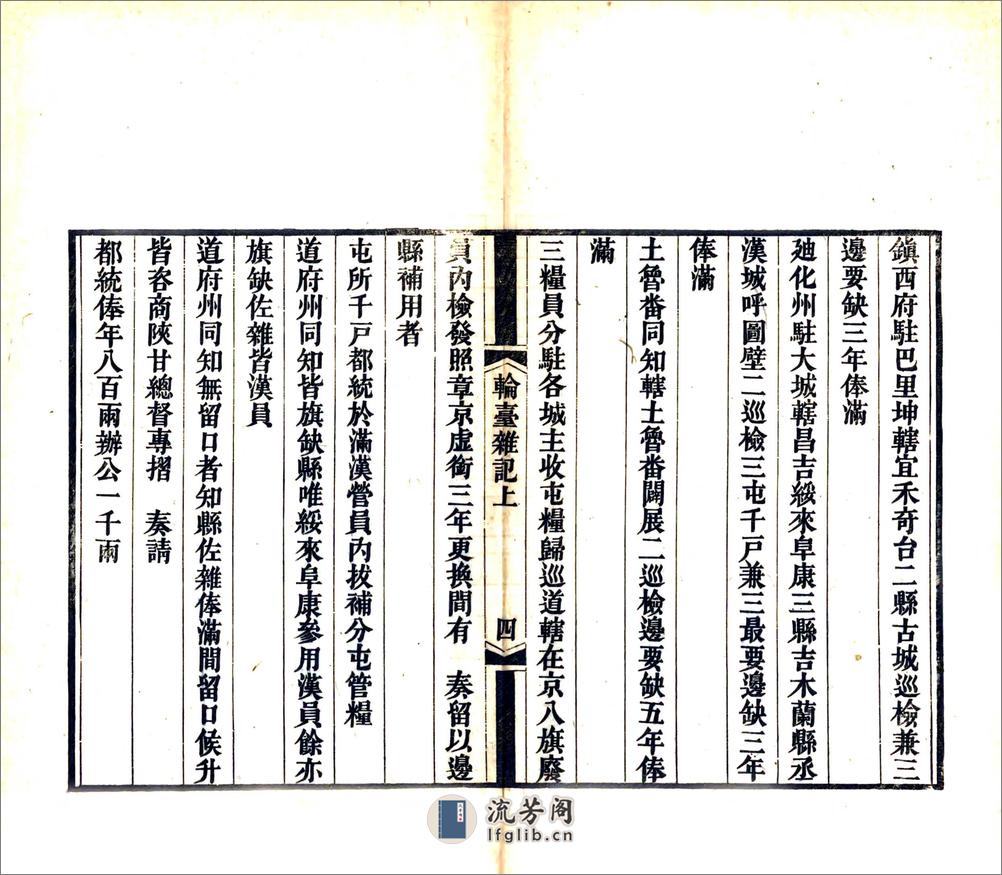 鎭西府駐巴里坤轄宜禾奇台二縣古城巡檢兼三
邊要缺三年俸滿
廸化州駐大城轄昌吉綏來阜康三縣吉木蘭縣丞
漢城呼圖壁二巡檢三屯千戸兼三最要邊缺三年
俸滿
土魯畨同知轄土魯畨闢展二巡檢邊要缺五年俸
滿
三糧員分駐各城主收屯糧歸巡道轄在京八旗廢
輪臺雜記上
四
員內檢發照章京虛銜三年更換間有　奏留以邊
縣補用者
屯所千戸都統於滿漢營員內拔補分屯管糧
道府州同知皆旗缺縣唯綏來阜康參用漢員餘亦
旗缺佐雜皆漢員
道府州同知無留口者知縣佐雜俸滿間留口候升
皆咨商陝甘總督專摺　奏請
都統俸年八百兩辦公一千兩
流芳阁
lfglib.cn